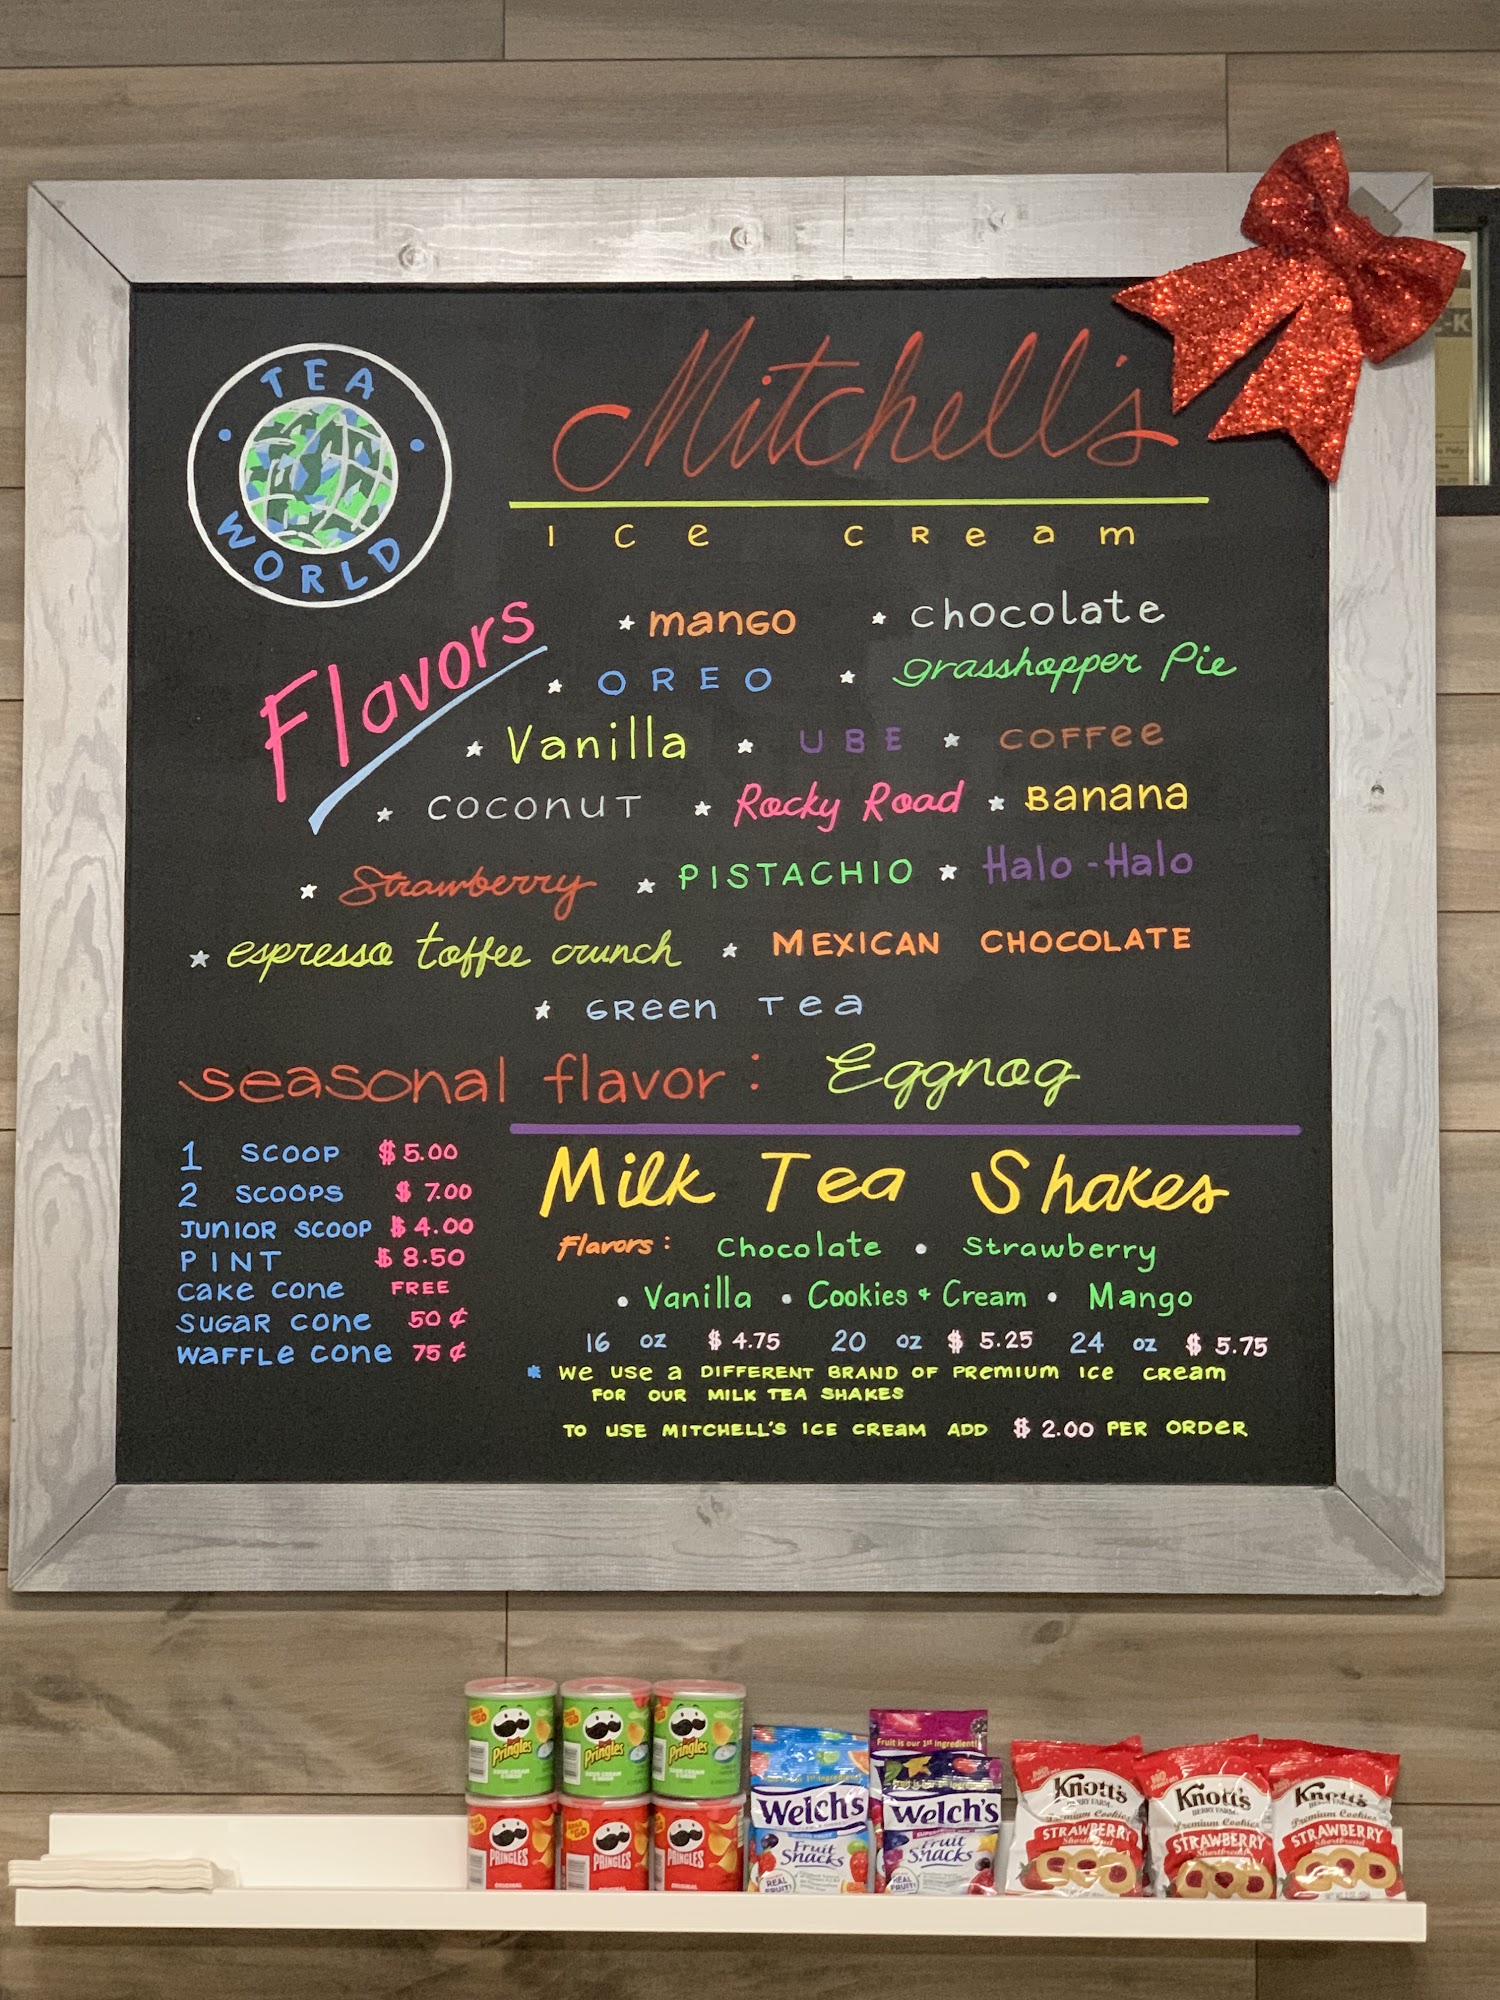 TEA
WORLD
Mitchell's
Ice Cream
Flavors
* mango * chocolate
* OREO * grasshopper Pie
* Vanilla * UBE * coffee
* coconut * Rocky Road * Banana
* Strawberry * PISTACHIO * Halo-Halo
* espresso toffee crunch * MEXICAN CHOCOLATE
* Green Tea
seasonal flavor: Eggnog
1 SCOOP $5.00
2 SCOOPS $7.00
JUNIOR SCOOP $4.00
PINT $8.50
cake cone FREE
SUGAR cone 50¢
WAFFLe cone 75¢
Milk Tea Shakes
Flavors: Chocolate • Strawberry
• Vanilla • Cookies + Cream • Mango
16 oz $4.75 20 oz $5.25 24 oz $5.75
* We use a DIFFERENT BRAND OF Premium Ice cream
FOR OUR MILK TEA SHAKES
TO USE MITCHELL'S ICE CREAM ADD $2.00 PER ORDER
Pringles Pringles Pringles
PRINGLES PRINGLES PRINGLES
ORIGINAL
Welch's
Fruit
Snacks
Fruit is our 1st Ingredient!
Welch's
Fruit
Snacks
Knott's
BERRY FARM
Premium Cookies
STRAWBERRY
Shortbread
Knott's
BERRY FARM
Premium Cookies
STRAWBERRY
Shortbread
Knott's
BERRY FARM
Premium Cookies
STRAWBERRY
Shortbread